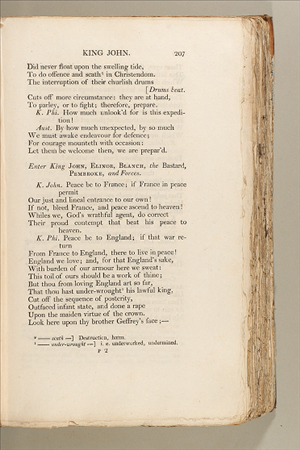 KING JOHN. 207
Did never float upon the swelling tide,
To do offence and scath¹ in Christendom.
The interruption of their churlish drums
[Drums beat.
Cuts off more circumstance: they are at hand,
To parley, or to fight; therefore, prepare.
K. Phi. How much unlook'd for is this expedi-
tion!
Aust. By how much unexpected, by so much
We must awake endeavour for defence;
For courage mounteth with occasion:
Let them be welcome then, we are prepar'd.
Enter King JOHN, ELINOR, BLANCH, the Bastard,
PEMBROKE, and Forces.
K. John. Peace be to France; if France in peace
permit
Our just and lineal entrance to our own!
If not, bleed France, and peace ascend to heaven!
Whiles we, God's wrathful agent, do correct
Their proud contempt that beat his peace to
heaven.
K. Phi. Peace be to England; if that war re-
turn
From France to England, there to live in peace!
England we love; and, for that England's sake,
With burden of our armour here we sweat:
This toil of ours should be a work of thine;
But thou from loving England art so far,
That thou hast under-wrought his lawful king,
Cut off the sequence of posterity,
Outfaced infant state, and done a rape
Upon the maiden virtue of the crown.
Look here upon thy brother Geffrey's face;—
—— scath —] Destruction, harm.
—— under-wrought —] i. e. underworked, undermined.
P 2